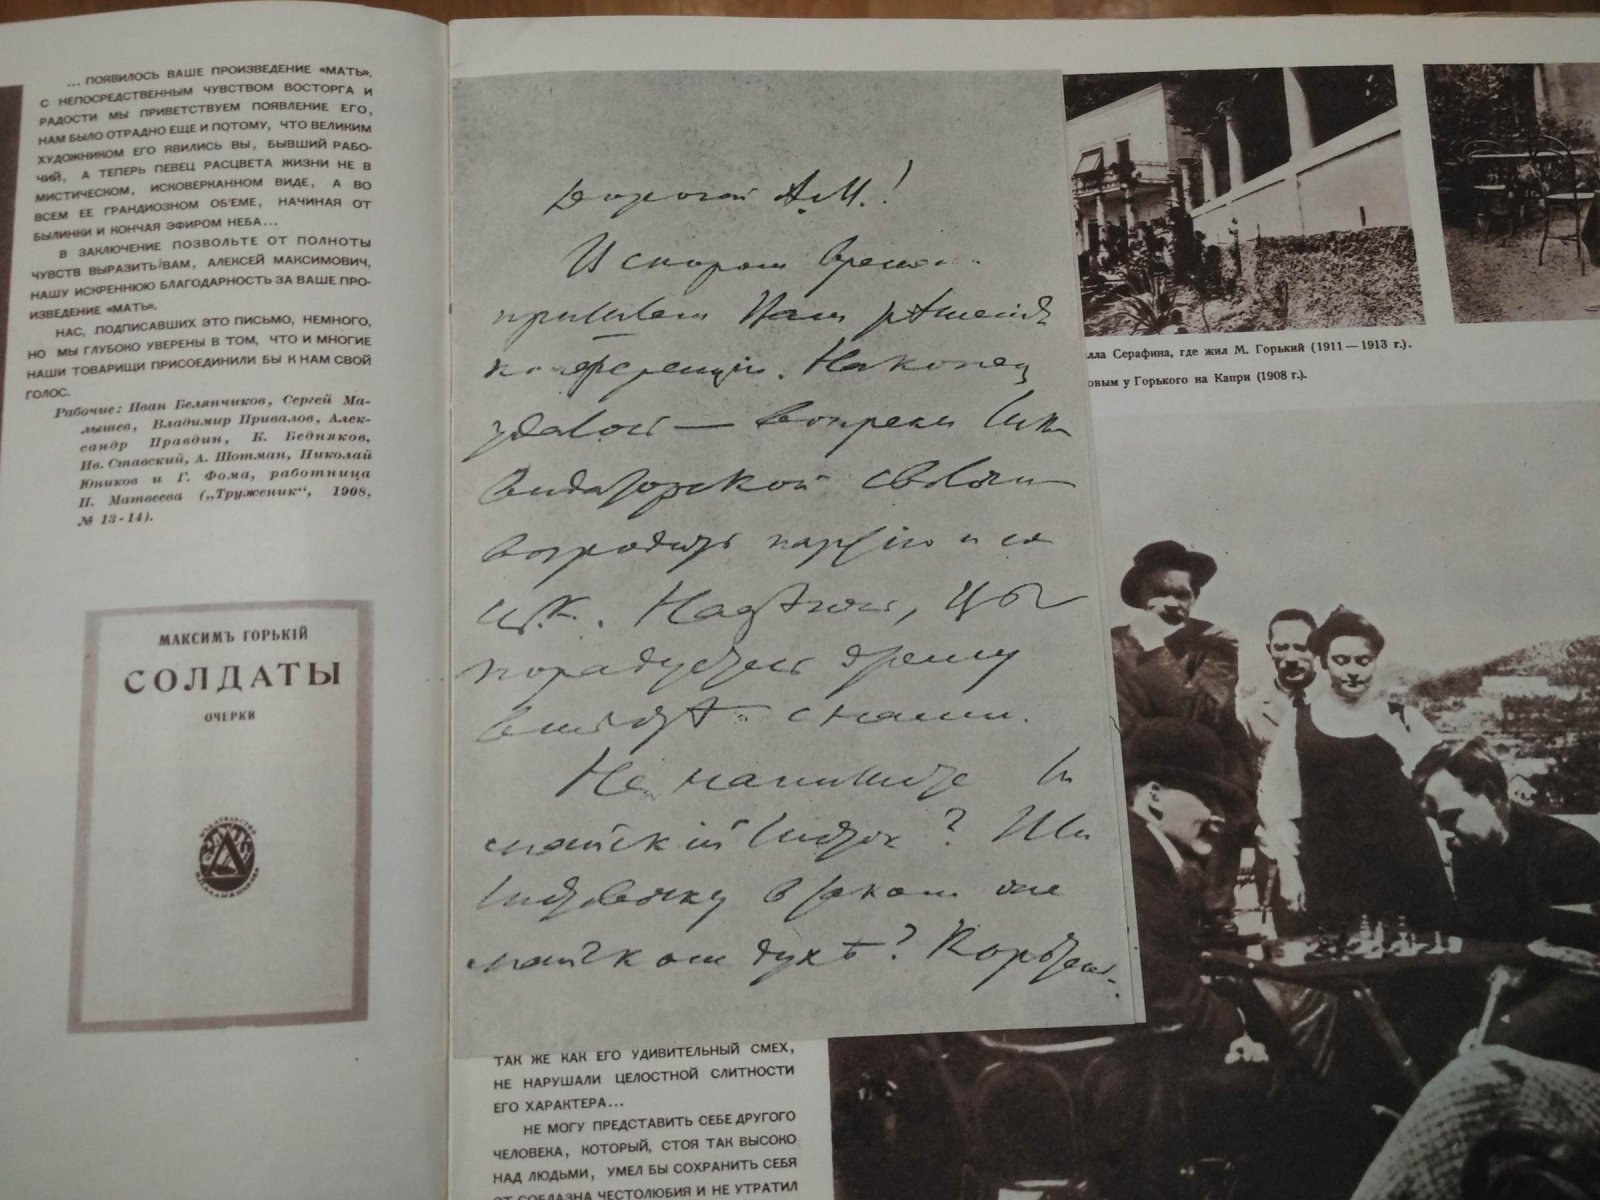 ... ПОЯВИЛОСЬ ВАШЕ ПРОИЗВЕДЕНИЕ «МАТЬ».
С НЕПОСРЕДСТВЕННЫМ ЧУВСТВОМ ВОСТОРГА И
РАДОСТИ МЫ ПРИВЕТСТВУЕМ ПОЯВЛЕНИЕ ЕГО,
НАМ БЫЛО ОТРАДНО ЕЩЕ И ПОТОМУ, ЧТО ВЕЛИКИМ
ХУДОЖНИКОМ ЕГО ЯВИЛИСЬ ВЫ, БЫВШИЙ РАБО-
ЧИЙ, А ТЕПЕРЬ ПЕВЕЦ РАСЦВЕТА ЖИЗНИ НЕ В
МИСТИЧЕСКОМ, ИСКОВЕРКАННОМ ВИДЕ, А ВО
ВСЕМ ЕЕ ГРАНДИОЗНОМ ОБ'ЕМЕ, НАЧИНАЯ ОТ
БЫЛИНКИ И КОНЧАЯ ЭФИРОМ НЕБА...
В ЗАКЛЮЧЕНИЕ ПОЗВОЛЬТЕ ОТ ПОЛНОТЫ
ЧУВСТВ ВЫРАЗИТЬ ВАМ, АЛЕКСЕЙ МАКСИМОВИЧ,
НАШУ ИСКРЕННЮЮ БЛАГОДАРНОСТЬ ЗА ВАШЕ ПРО-
ИЗВЕДЕНИЕ «МАТЬ».
НАС, ПОДПИСАВШИХ ЭТО ПИСЬМО, НЕМНОГО,
НО МЫ ГЛУБОКО УВЕРЕНЫ В ТОМ, ЧТО И МНОГИЕ
НАШИ ТОВАРИЩИ ПРИСОЕДИНИЛИ БЫ К НАМ СВОЙ
ГОЛОС.
Рабочие: Иван Белянчиков, Сергей Ма-
лышев, Владимир Привалов, Алек-
сандр Правдин, К. Бедняков,
Ив. Ставский, А. Шотман, Николай
Юников и Г. Фома, работница
П. Матвеева („Труженик“, 1908,
№ 13-14).
МАКСИМЪ ГОРЬКІЙ
СОЛДАТЫ
ОЧЕРКИ
Дорогой А.М.!
В скором времени
пришлем Вам решенія
конференціи. Наконец
удалось — вопреки лик-
видаторской сволочи —
возродить партію и ея
Ц.К. Надеюсь, Вы
порадуетесь этому
вместе с нами.
Не напишете ли
майскій листок? Или
листовочку в таком же
майском духе?
лла Серафина, где жил М. Горький (1911—1913 г.).
овым у Горького на Капри (1908 г.).
ТАК ЖЕ КАК ЕГО УДИВИТЕЛЬНЫЙ СМЕХ,
НЕ НАРУШАЛИ ЦЕЛОСТНОЙ СЛИТНОСТИ
ЕГО ХАРАКТЕРА...
НЕ МОГУ ПРЕДСТАВИТЬ СЕБЕ ДРУГОГО
ЧЕЛОВЕКА, КОТОРЫЙ, СТОЯ ТАК ВЫСОКО
НАД ЛЮДЬМИ, УМЕЛ БЫ СОХРАНИТЬ СЕБЯ
ОТ СОБЛАЗНА ЧЕСТОЛЮБИЯ И НЕ УТРАТИЛ